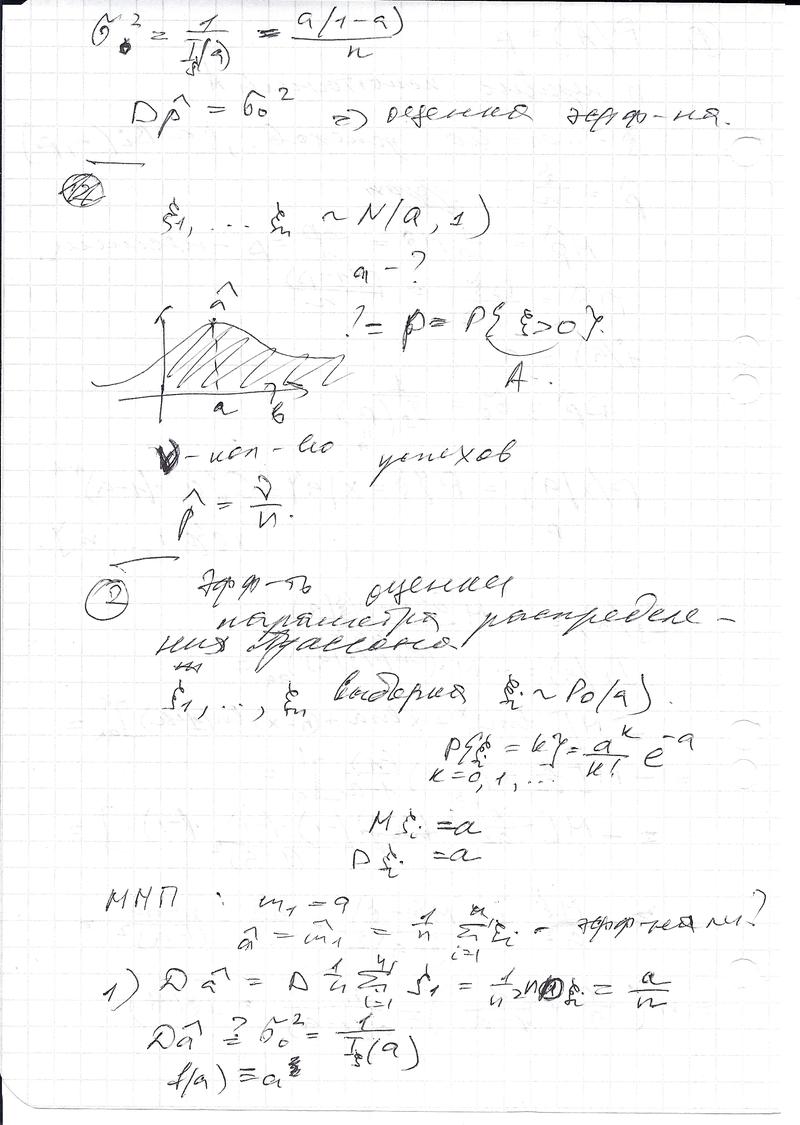 σ₀² = 1/I_ξ(a) = a(1-a)/n
Dp̂ = σ₀² => оценка эфф-на.
ξ₁, ... ξₙ ~ N(a, 1)
a - ?
â
? = p = P{ξ>0}.
A.
a
ν - кол-во успехов
p̂ = ν/n.
② Эфф-ть оценки
параметра распределе-
ния Пуассона
ξ₁, ..., ξₙ выборка ξᵢ ~ Po(a).
P{ξᵢ = k} = aᵏ/k! e⁻ᵃ
k=0, 1, ...
Mξᵢ = a
Dξᵢ = a
ММП : m₁ = a
â = m̂₁ = 1/n Σᵢ₌₁ⁿ ξᵢ - эфф-на ли?
1) Dâ = D 1/n Σᵢ₌₁ⁿ ξ₁ = 1/n² n Dξᵢ = a/n
Dâ ≟ σ₀² = 1/I_ξ(a)
f(a) ≡ a